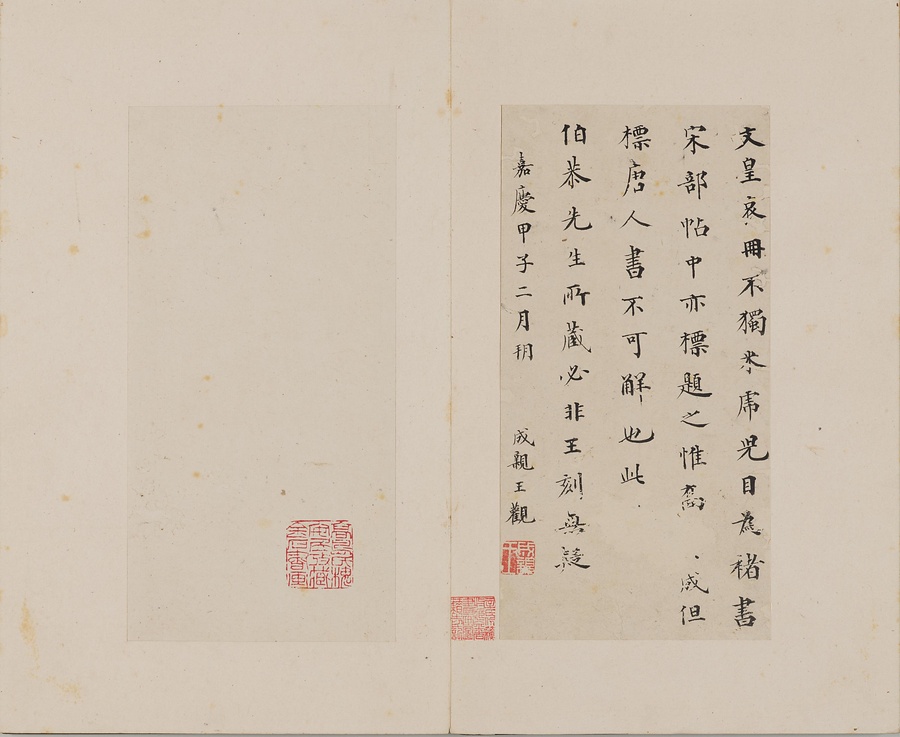 文皇哀冊不獨米虎兒目為褚書
宋部帖中亦標題之惟 咸但
標唐人書不可解也此
伯恭先生所藏必非王刻無疑
嘉慶甲子二月朔
成親王觀